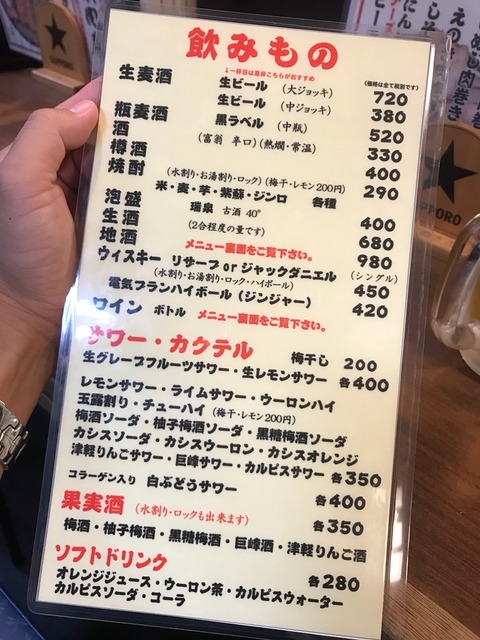 飲みもの
↓一杯目は是非こちらがおすすめ
(価格は全て税別です)
生麦酒 生ビール (大ジョッキ) 720
生ビール (中ジョッキ) 380
瓶麦酒 黒ラベル (中瓶) 520
酒 (富翁 辛口)(熱燗・常温) 330
樽酒 400
焼酎 (水割り・お湯割り・ロック)(梅干・レモン200円) 290
米・麦・芋・紫蘇・ジンロ 各種
泡盛 瑞泉 古酒 40° 400
生酒 (2合程度の量です) 680
地酒 メニュー裏面をご覧下さい。 980
ウィスキー リザーブ or ジャックダニエル (シングル)
(水割り・お湯割り・ロック・ハイボール) 450
電気ブランハイボール (ジンジャー) 420
ワイン ボトル メニュー裏面をご覧下さい。
サワー・カクテル 梅干し 200
生グレープフルーツサワー・生レモンサワー 各400
レモンサワー・ライムサワー・ウーロンハイ
玉露割り・チューハイ (梅干・レモン200円)
梅酒ソーダ・柚子梅酒ソーダ・黒糖梅酒ソーダ
カシスソーダ・カシスウーロン・カシスオレンジ
津軽りんごサワー・巨峰サワー・カルピスサワー 各350
コラーゲン入り 白ぶどうサワー 各400
果実酒 (水割り・ロックも出来ます) 各350
梅酒・柚子梅酒・黒糖梅酒・巨峰酒・津軽りんご酒
ソフトドリンク 各280
オレンジジュース・ウーロン茶・カルピスウォーター
カルピスソーダ・コーラ
SAPPORO
肉巻き